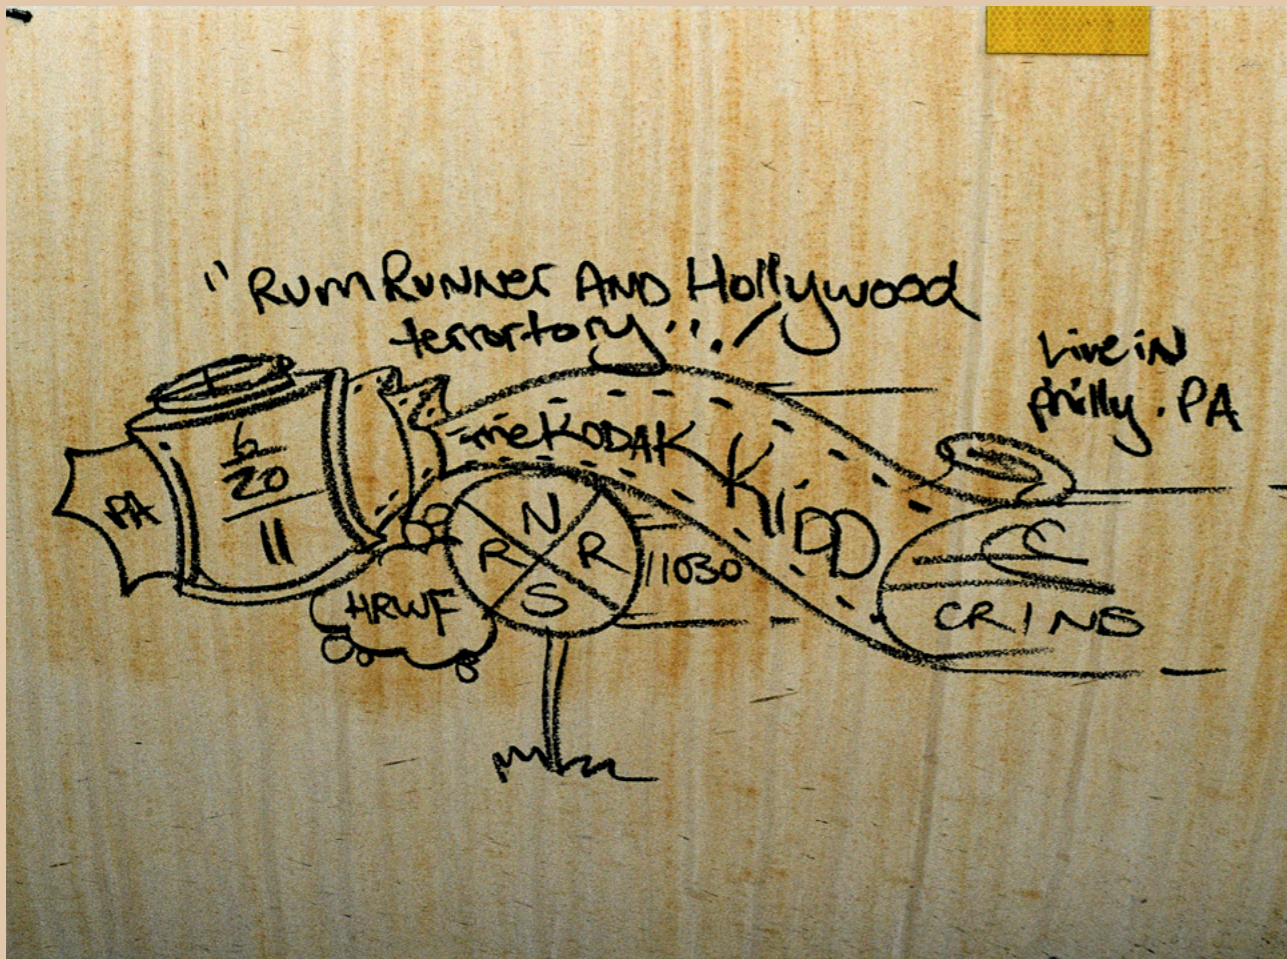 "RumRunner AND Hollywood
terrortory".
Live iN
philly. PA
PA
6
20
11
the KODAK
KiDD
N
R R
S
11030
HRWF
C
CRINS